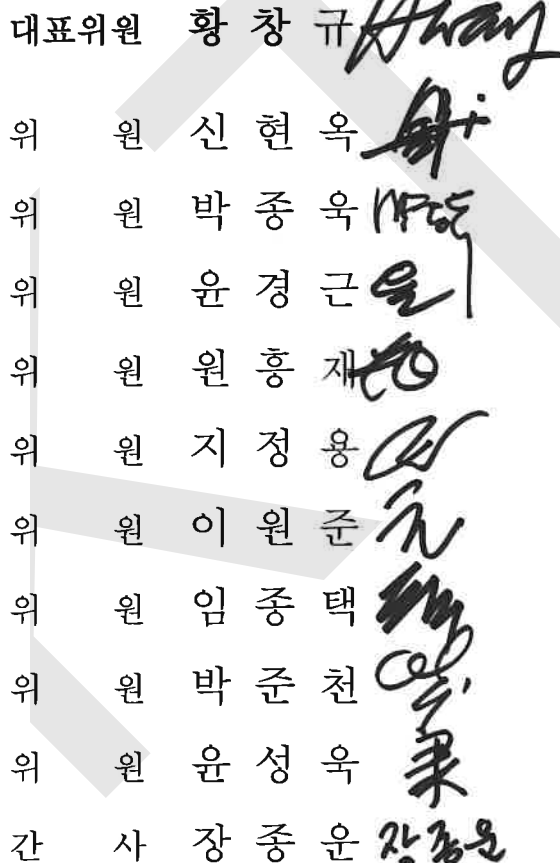 대표위원 황 창 규 Hwang
위 원 신 현 옥
위 원 박 종 욱
위 원 윤 경 근
위 원 원 흥 재
위 원 지 정 용
위 원 이 원 준
위 원 임 종 택
위 원 박 준 천
위 원 윤 성 욱
간 사 장 종 운 장종운